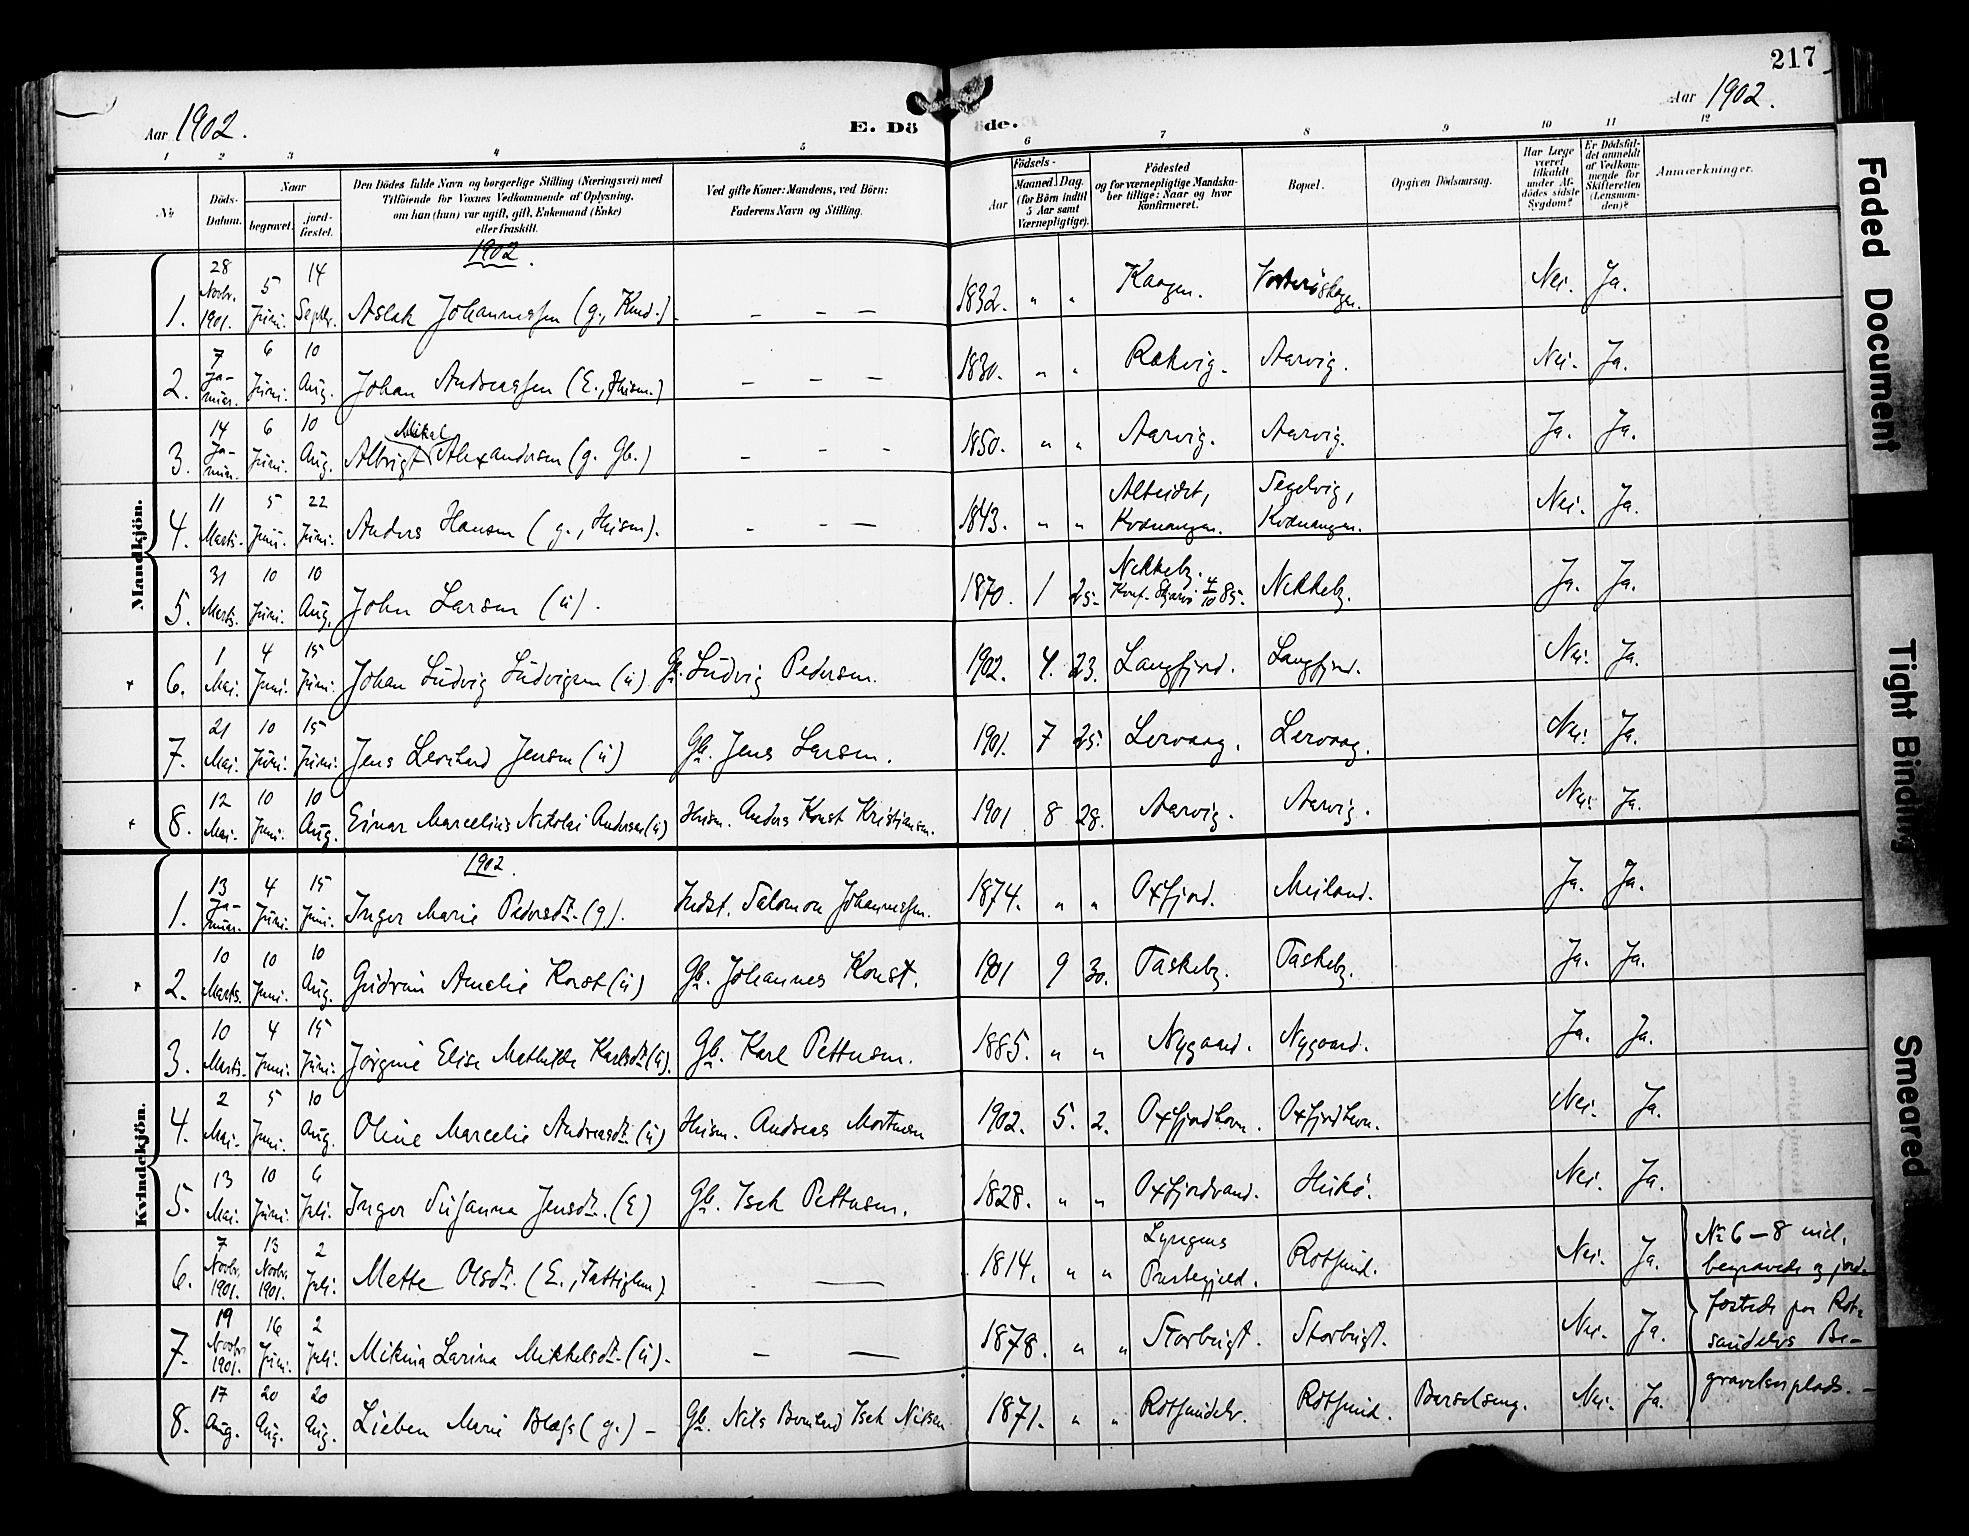 217
Aar 1902.
E. Döde.
Aar 1902.
1 2 3 4 5 6 7 8 9 10 11 12
No
Döds-Datum.
Naar
begravet.
jord-fæstet.
Den Dödes fulde Navn og borgerlige Stilling (Næringsvei) med
Tilföiende for Voxnes Vedkommende af Oplysning,
om han (hun) var ugift, gift, Enkemand (Enke)
eller fraskilt.
Ved gifte Koner: Mandens, ved Börn:
Faderens Navn og Stilling.
Födsels-
Aar
Maaned. Dag.
(for Börn indtil
5 Aar samt
Værnepligtige).
Födested
og for værnepligtige Mandska-
ber tillige: Naar og hvor
konfirmeret.
Bopæl.
Opgiven Dödsaarsag.
Har Læge
været
tilkaldt
under Af-
dödes sidste
Sygdom?
Er Dödsfal-
det anmeldt
af Vedkom-
mende for
Skifteretten
(Lensman-
den)?
Anmærkninger.
Mandkjön.
1902.
1. 28 Novbr. 1901. 5 Juni. 14 Septbr. Aslak Johannessen (g., Kmd.) — — — 1832. " " Kaagen. Nei. Ja.
2. 7 Ja-nuar. 6 Juni. 10 Aug. Johan Andreassen (E., Husm.) — — — 1830. " " Rakvig. Aarvig. Nei. Ja.
3. 14 Ja-nuar. 6 Juni. 10 Aug. Albrigt Mikal Alexandersen (g. Gb.) — — — 1850. " " Aarvig. Aarvig. Ja. Ja.
4. 11 Marts. 5 Juni. 22 Juni. Anders Hansen (g., Husm). — — — 1843. " " Alteidet, Kvænangen. Segelvig, Kvænangen. Nei. Ja.
5. 31 Marts. 10 Juni. 10 Aug. John Larsen (ú). 1870. 1 25. Nekkely. Konf. Skjærvö 4/10 85. Nekkelby. Ja. Ja.
+ 6. 1 Mai. 4 Juni. 15 Juni. Johan Ludvig Ludvigsen (ú) Gb. Ludvig Pedersen. 1902. 4. 23. Langfjord. Langfjord. Nei. Ja.
7. 21 Mai. 10 Juni. 15 Juni. Jens Leonhard Jensen (ú) Gb. Jens Larsen. 1901. 7 25. Lervaag. Lervaag. Nei. Ja.
+ 8. 12 Mai. 10 Juni. 10 Aug. Einar Marcelius Nikolai Andersen (ú) Husm. Anders Konst Kristiansen. 1901 8 28. Aarvig. Aarvig. Nei. Ja.
Kvindekjön.
1902.
1. 13 Ja-nuar. 4 Juni. 15 Juni. Inger Marie Pedersdt. (g). Indst. Salomon Johannessen. 1874. " " Oxfjord. Meiland. Ja. Ja.
+ 2. 10 Marts. 10 Juni. 10 Aug. Gudrun Amelie Konst (ú) Gb. Johannes Konst. 1901 9 30. Taskeby. Taskeby. Ja. Ja.
3. 10 Marts. 4 Juni. 15 Juni. Jørgine Elise Mathilde Karlsdt. (ú). Gb. Karl Pettersen. 1885. " " Nygaard. Nygaard. Ja. Ja.
4. 2 Mai. 5 Juni. 10 Aug. Oline Marcelie Andreasdt. (ú) Husm. Andreas Mortensen 1902. 5. 2. Oxfjordhavn. Oxfjordhavn. Nei. Ja.
5. 13 Mai. 10 Juni. 6 Juli. Inger Susanna Jensdt. (E) Gb. Isak Pettersen. 1828. " " Oxfjordvand. Hukö. Nei. Ja.
6. 7 Novbr. 1901. 13 Novbr. 1901. 2 Juli. Mette Olsdt. (E., Fattiglem) — 1814. " " Lyngens Præstegjeld. Rotsund. Nei. Ja.
7. 19 Novbr. 1901. 16 Juni. 2 Juli. Mikina Larina Mikkelsdt. (ú). — — 1878. " " Storbugt. Storbugt. Nei. Ja.
8. 17 Aug. 20 Aug. 20 Aug. Lisben Marie Blæss (g.) — Gb. Nils Bernhard Isak Nilsen 1871. " " Rotsundelv. Rotsund. Barselseng. Nei. Ja.
No 6—8 incl.
begravede og jord-
fæstede paa Rot-
sundelvs Be-
gravelsesplads. —
Faded Document
Tight Binding
Smeared